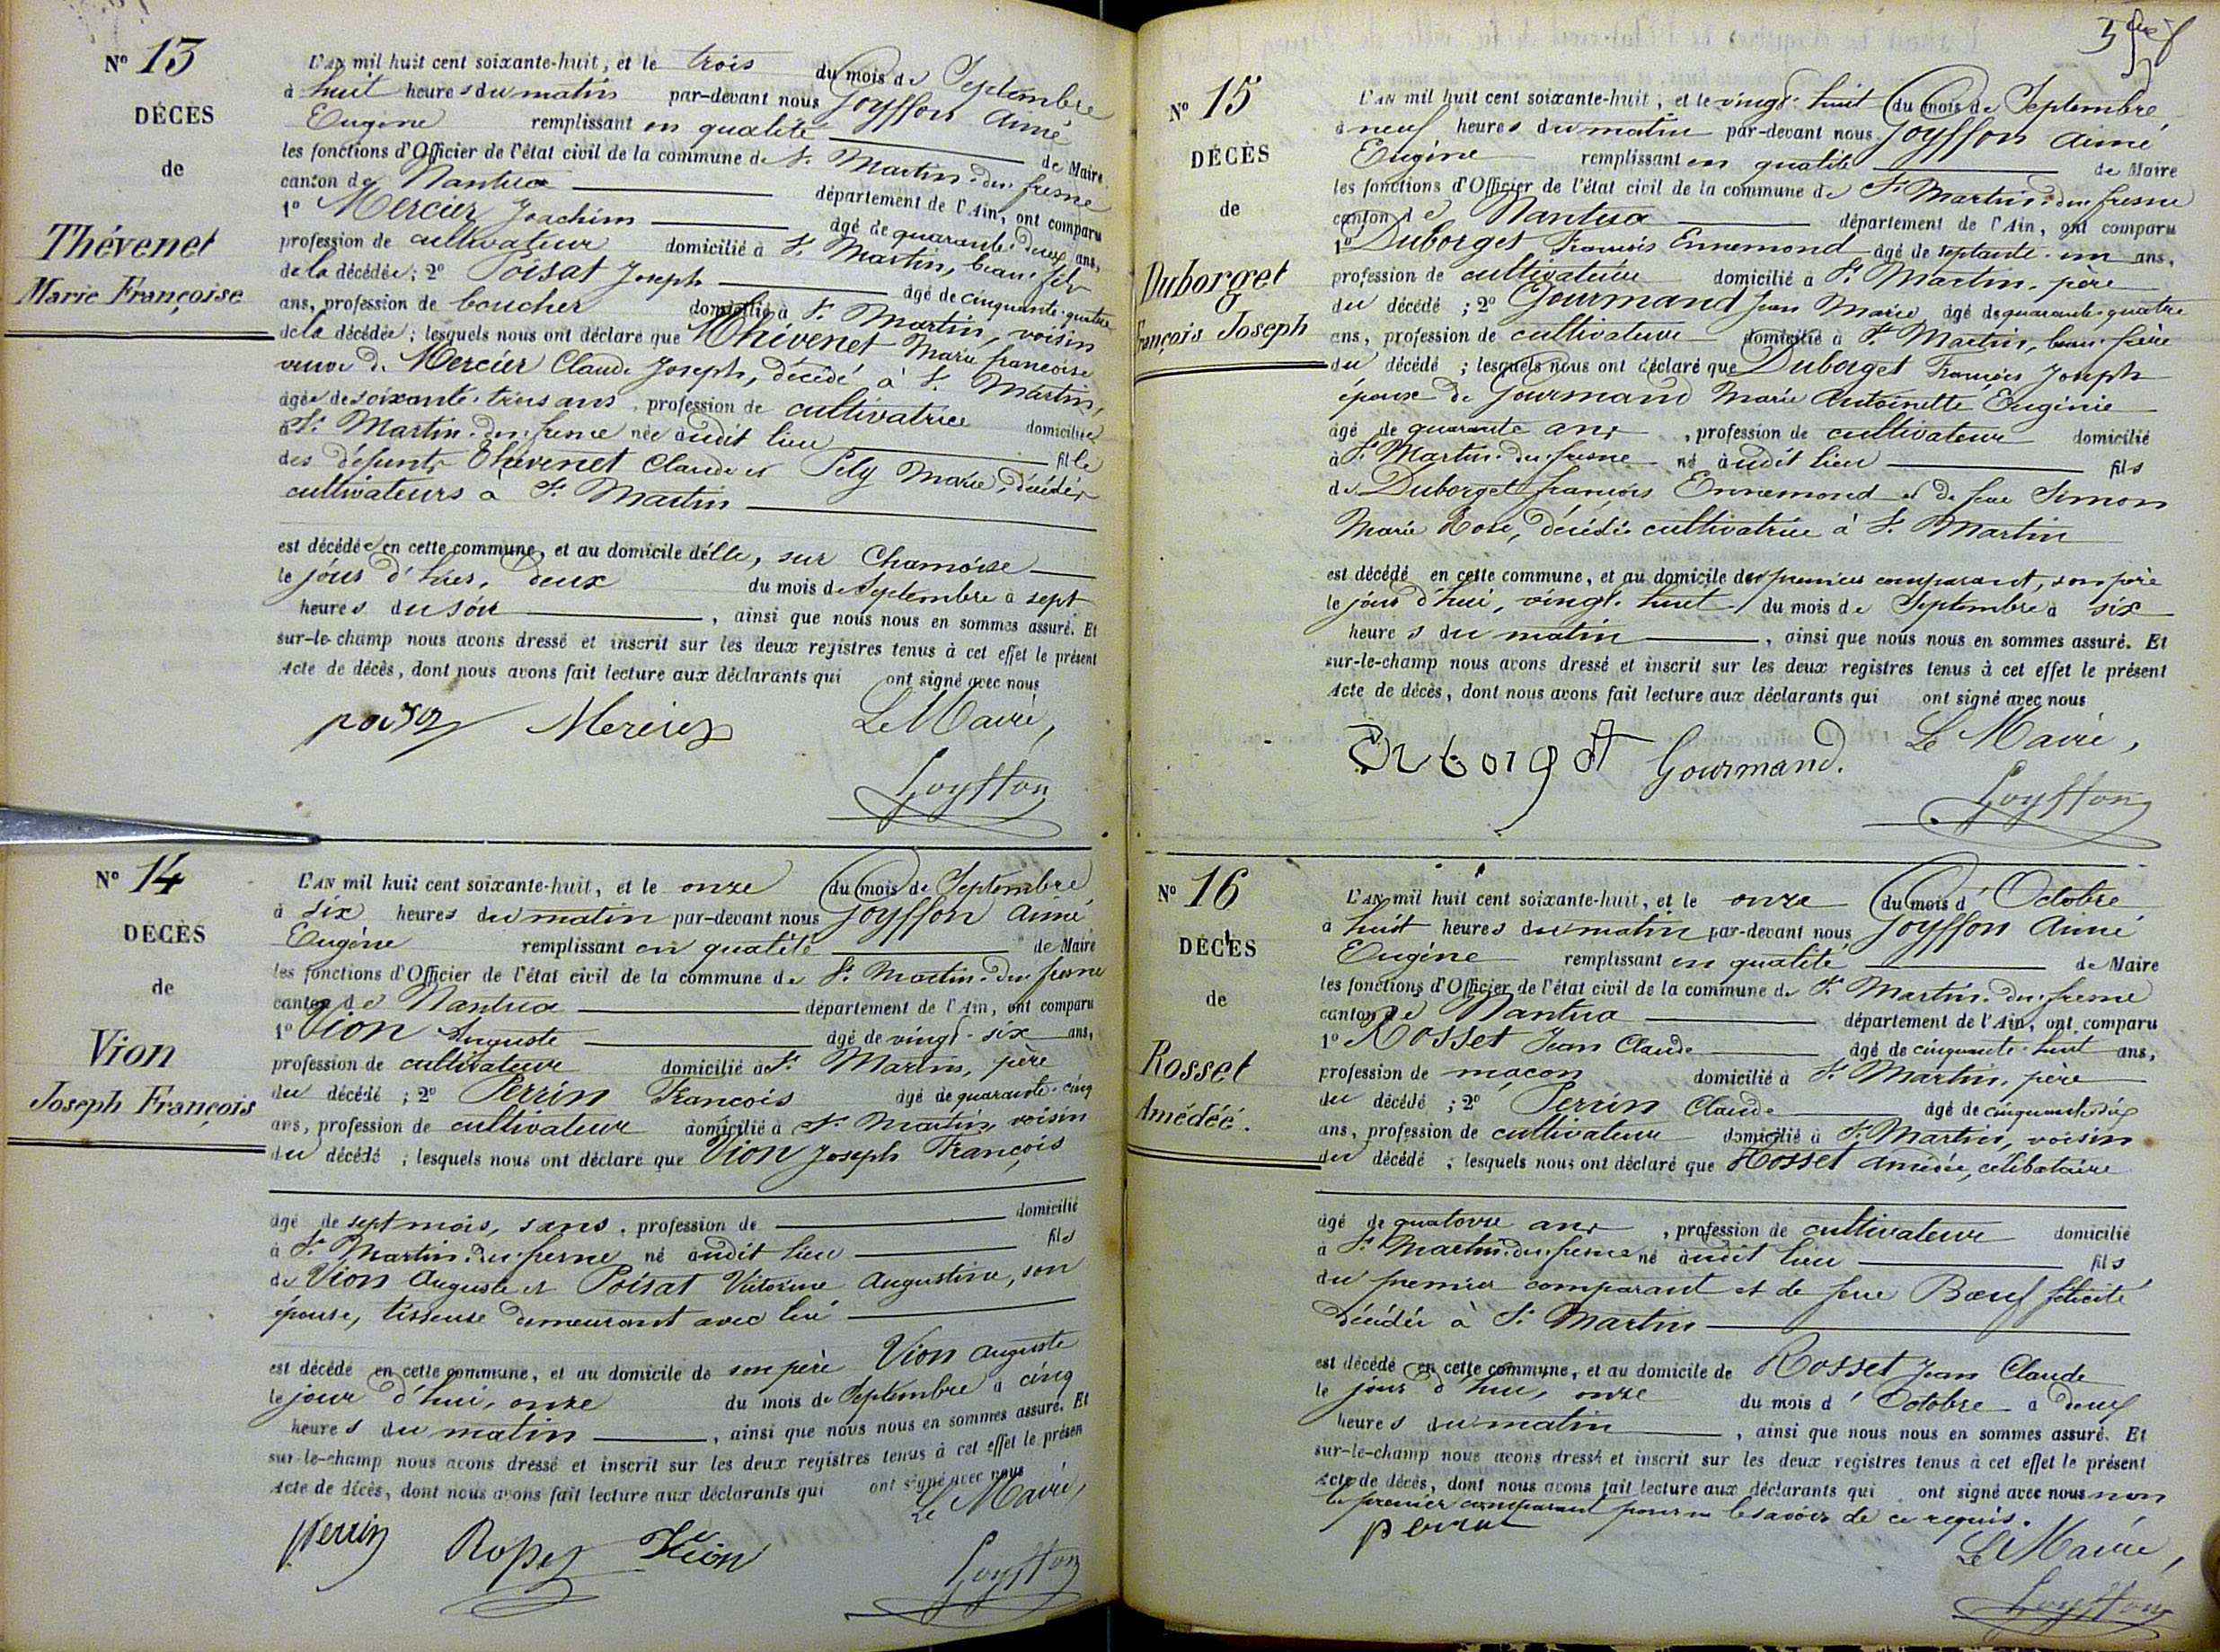 N° 13
DÉCÈS
de
Thévenet
Marie Françoise
L'AN mil huit cent soixante-huit, et le trois du mois de Septembre
à huit heures du matin par-devant nous Goyffon Aimé
Eugène remplissant en qualité de Maire
les fonctions d'Officier de l'état civil de la commune de St Martin-du-fresne
canton de Nantua département de l'Ain, ont comparu
1° Mercier Joachim âgé de quarante-deux ans,
profession de cultivateur domicilié à St Martin, beau-fils
de la décédée; 2° Poisat Joseph âgé de cinquante-quatre
ans, profession de boucher domicilié à St Martin, voisin
de la décédée; lesquels nous ont déclaré que Thévenet Marie françoise
veuve de Mercier Claude Joseph, décédé à St Martin,
âgée de soixante-trois ans, profession de cultivatrice domiciliée
à St Martin-du-fresne née audit lieu fille
des défunts Thévenet Claude et Pely Marie, décédés
cultivateurs à St Martin
est décédée en cette commune, et au domicile d'elle, sur Chamoise
le jour d'hier, deux du mois de Septembre à sept
heures du soir, ainsi que nous nous en sommes assuré. Et
sur-le-champ nous avons dressé et inscrit sur les deux registres tenus à cet effet le présent
Acte de décès, dont nous avons fait lecture aux déclarants qui ont signé avec nous
Mercier Le Maire,
Goyffon
N° 14
DÉCÈS
de
Vion
Joseph François
L'AN mil huit cent soixante-huit, et le onze du mois de Septembre
à six heures du matin par-devant nous Goyffon Aimé
Eugène remplissant en qualité de Maire
les fonctions d'Officier de l'état civil de la commune de St Martin-du-fresne
canton de Nantua département de l'Ain, ont comparu
1° Vion Auguste âgé de vingt-six ans,
profession de cultivateur domicilié à St Martin, père
du décédé; 2° Perrin François âgé de quarante-cinq
ans, profession de cultivateur domicilié à St Martin, voisin
du décédé; lesquels nous ont déclaré que Vion Joseph François
âgé de sept mois, sans profession de domicilié
à St Martin-du-fresne né audit lieu fils
de Vion Auguste et Poisat Victorine Augustine, son
épouse, tisseuse demeurant avec lui
est décédé en cette commune, et au domicile de son père Vion Auguste
le jour d'hui, onze du mois de Septembre à cinq
heures du matin, ainsi que nous nous en sommes assuré. Et
sur-le-champ nous avons dressé et inscrit sur les deux registres tenus à cet effet le présen
Acte de décès, dont nous avons fait lecture aux déclarants qui ont signé avec nous
Le Maire,
Perrin Vion
Goyffon
N° 15
DÉCÈS
de
Duborget
François Joseph
L'AN mil huit cent soixante-huit, et le vingt-huit du mois de Septembre
à neuf heures du matin par-devant nous Goyffon Aimé
Eugène remplissant en qualité de Maire
les fonctions d'Officier de l'état civil de la commune de St Martin-du-fresne
canton de Nantua département de l'Ain, ont comparu
1° Duborget François Ennemond âgé de septante-un ans,
profession de cultivateur domicilié à St Martin, père
du décédé; 2° Gourmand Jean Marie âgé de quarante-quatre
ans, profession de cultivateur domicilié à St Martin, beau-frère
du décédé; lesquels nous ont déclaré que Duborget François Joseph
époux de Gourmand Marie Antoinette Eugénie
âgé de quarante ans, profession de cultivateur domicilié
à St Martin-du-fresne né audit lieu fils
de Duborget françois Ennemond et de feue Simon
Marie Rose, décédée cultivatrice à St Martin
est décédé en cette commune, et au domicile du premier comparant, son père
le jour d'hui, vingt-huit du mois de Septembre à six
heures du matin, ainsi que nous nous en sommes assuré. Et
sur-le-champ nous avons dressé et inscrit sur les deux registres tenus à cet effet le présent
Acte de décès, dont nous avons fait lecture aux déclarants qui ont signé avec nous
Duborget Gourmand. Le Maire,
Goyffon
N° 16
DÉCÈS
de
Rosset
Amédéé.
L'AN mil huit cent soixante-huit, et le onze du mois d'Octobre
à huit heures du matin par-devant nous Goyffon Aimé
Eugène remplissant en qualité de Maire
les fonctions d'Officier de l'état civil de la commune de St Martin-du-fresne
canton de Nantua département de l'Ain, ont comparu
1° Rosset Jean Claude âgé de cinquante-huit ans,
profession de maçon domicilié à St Martin, père
du décédé; 2° Perrin Claude âgé de cinquante-six
ans, profession de cultivateur domicilié à St Martin, voisin
du décédé; lesquels nous ont déclaré que Rosset Amédée, célibataire
âgé de quatorze ans, profession de cultivateur domicilié
à St Martin-du-fresne né audit lieu fils
du premier comparant et de feue Bœuf félicité
décédée à St Martin
est décédé en cette commune, et au domicile de Rosset Jean Claude
le jour d'hui, onze du mois d'Octobre à deux
heures du matin, ainsi que nous nous en sommes assuré. Et
sur-le-champ nous avons dressé et inscrit sur les deux registres tenus à cet effet le présent
Acte de décès, dont nous avons fait lecture aux déclarants qui ont signé avec nous non
le premier comparant pour ne le savoir de ce requis.
Le Maire,
Goyffon